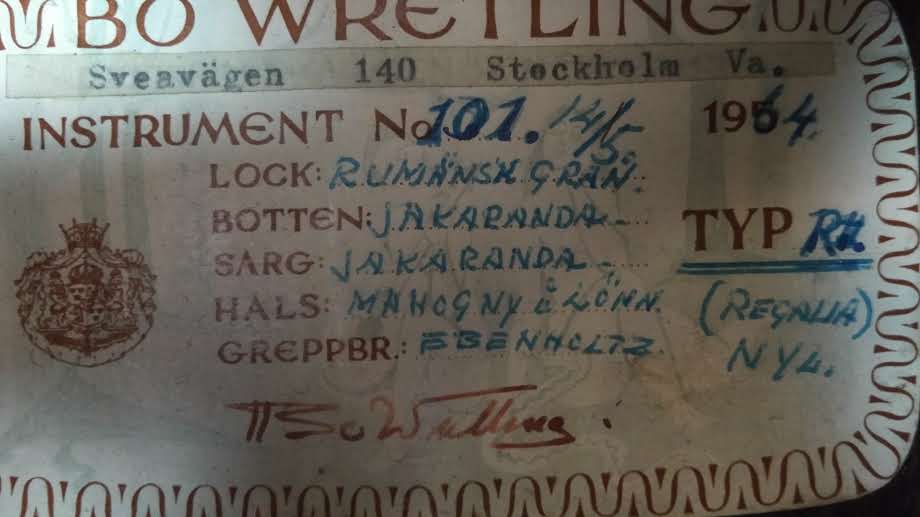 BO WRETLING
Sveavägen 140 Stockholm Va.
INSTRUMENT No 101. 14/5. 1964.
LOCK: RUMÄNSK GRAN.
BOTTEN: JAKARANDA
SARG: JAKARANDA
HALS: MAHOGNY & LÖNN.
GREPPBR.: EBENHOLTZ.
TYP RH.
(REGALIA)
NYL.
Bo Wretling